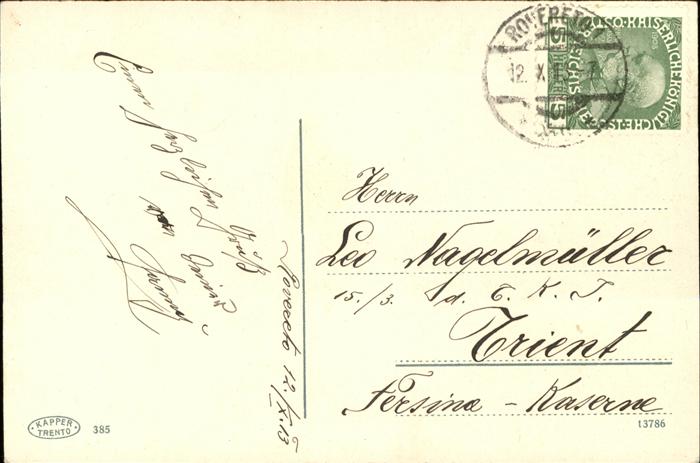 ROVERETO 1
12. X. 13
5 HELLER 5
KAISERLICHE KÖNIGLICHE
POST
1908
Herrn
Leo Nagelmüller
15./3. d. T. K. J.
Trient
Fersina - Kaserne
Rovereto 12/X. 13
Einen herzlichen
Gruß
KAPPER
TRENTO
385
13786